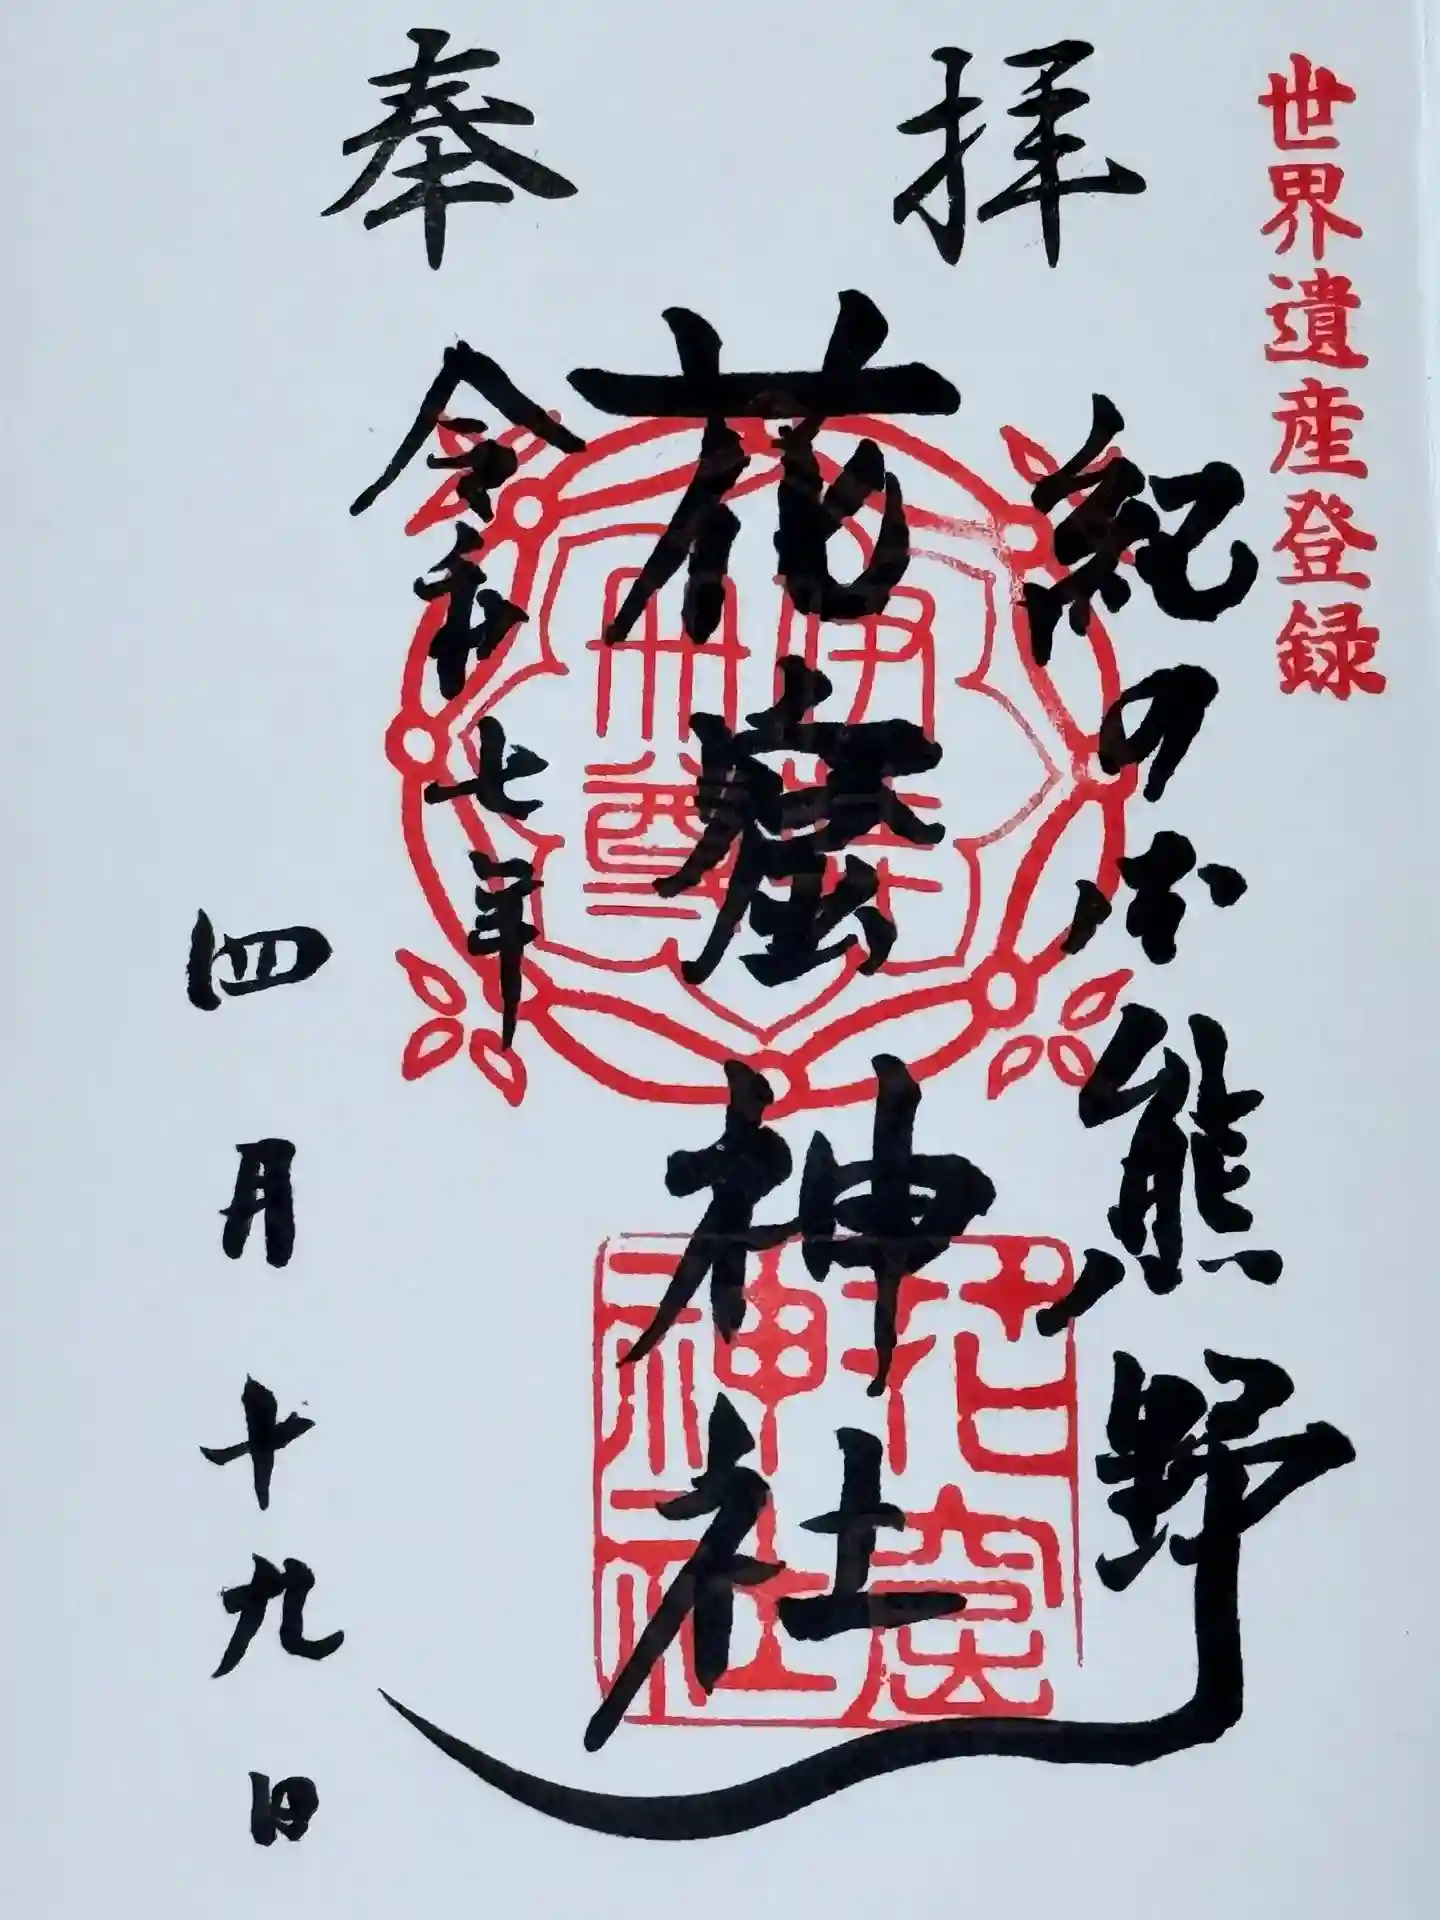 奉拝
世界遺産登録
紀の国熊野
花窟神社
令和七年
四月十九日
伊弉
冊尊
花窟
神社